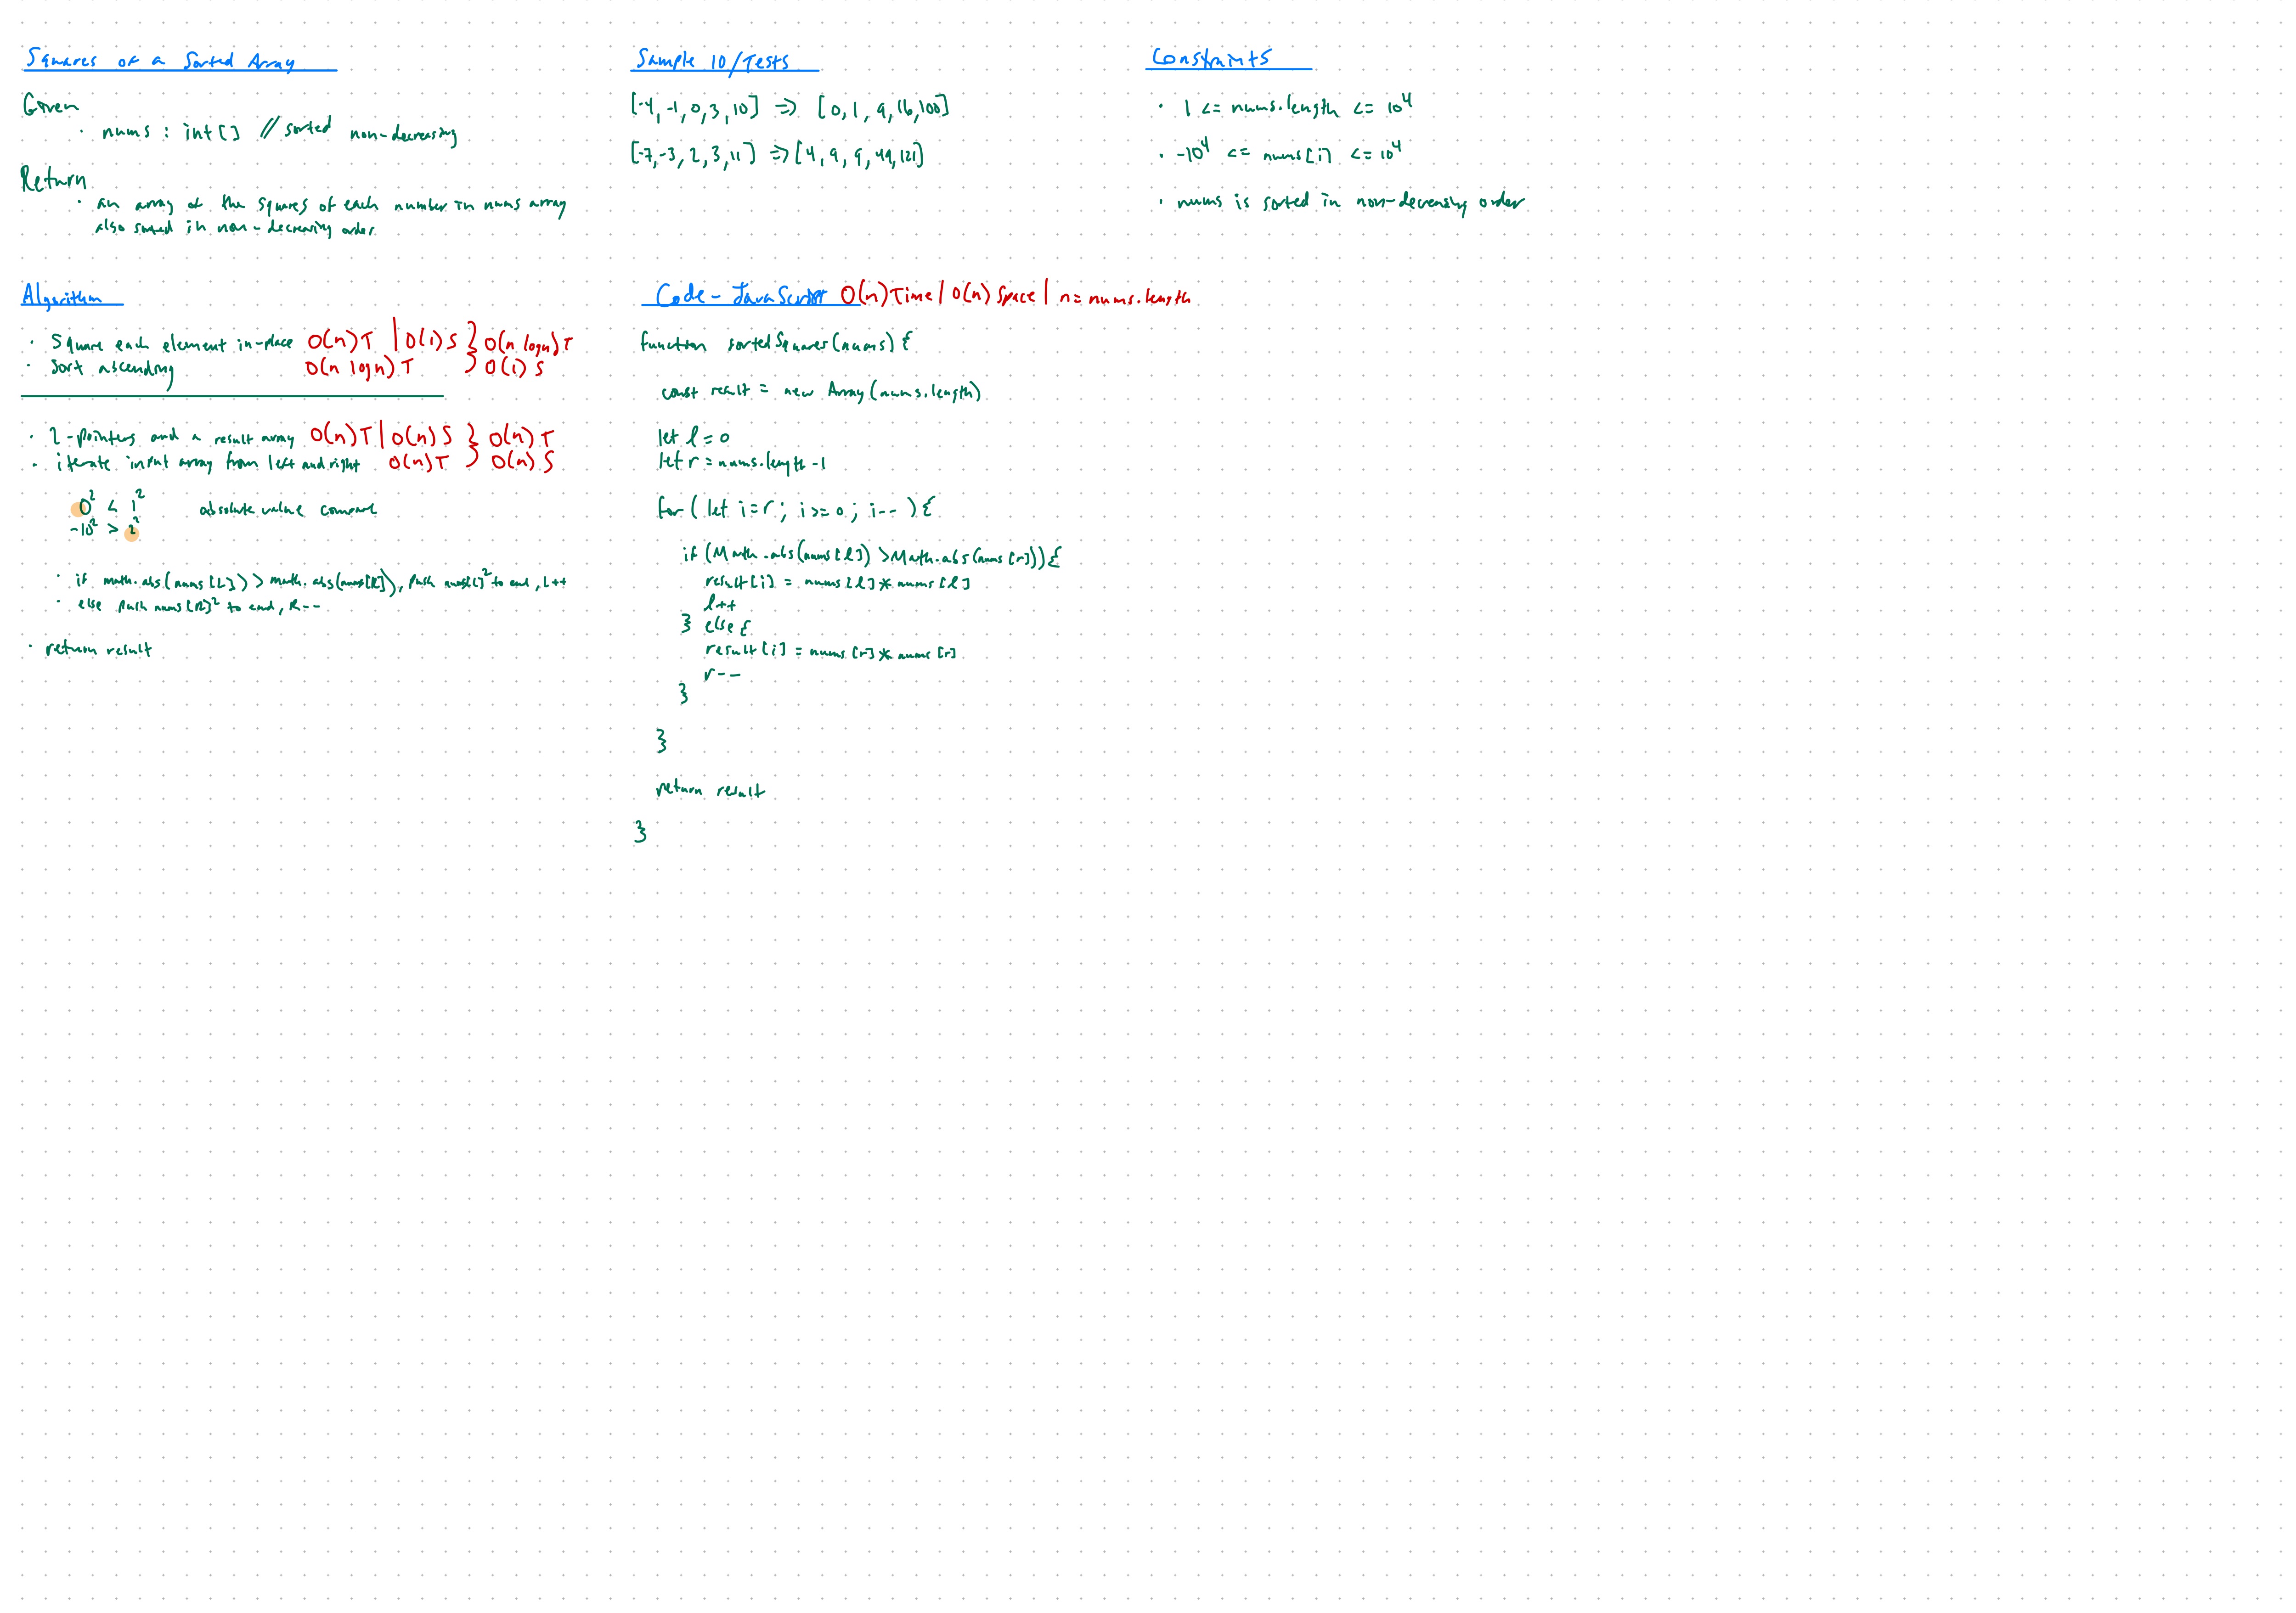 Squares of a Sorted Array
Given
· nums : int[] // sorted non-decreasing
Return
· an array of the squares of each number in nums array
also sorted in non-decreasing order
Sample IO/Tests
[-4, -1, 0, 3, 10] => [0, 1, 9, 16, 100]
[-7, -3, 2, 3, 11] => [4, 9, 9, 49, 121]
Constraints
· 1 <= nums.length <= 10⁴
· -10⁴ <= nums[i] <= 10⁴
· nums is sorted in non-decreasing order
Algorithm
· Square each element in-place O(n) T | O(1) S } O(n logn) T
· Sort ascending O(n logn) T } O(1) S
· 2-pointers and a result array O(n) T | O(n) S } O(n) T
· iterate input array from left and right O(n) T } O(n) S
0² < 1² absolute value compare
-10² > 2²
· if math.abs(nums[L]) > math.abs(nums[R]), push nums[L]² to end, L++
· else push nums[R]² to end, R--
· return result
Code - JavaScript O(n) Time | O(n) Space | n = nums.length
function sortedSquares(nums) {
const result = new Array(nums.length)
let l = 0
let r = nums.length - 1
for (let i = r; i >= 0; i--) {
if (Math.abs(nums[l]) > Math.abs(nums[r])) {
result[i] = nums[l] * nums[l]
l++
} else {
result[i] = nums[r] * nums[r]
r--
}
}
return result
}